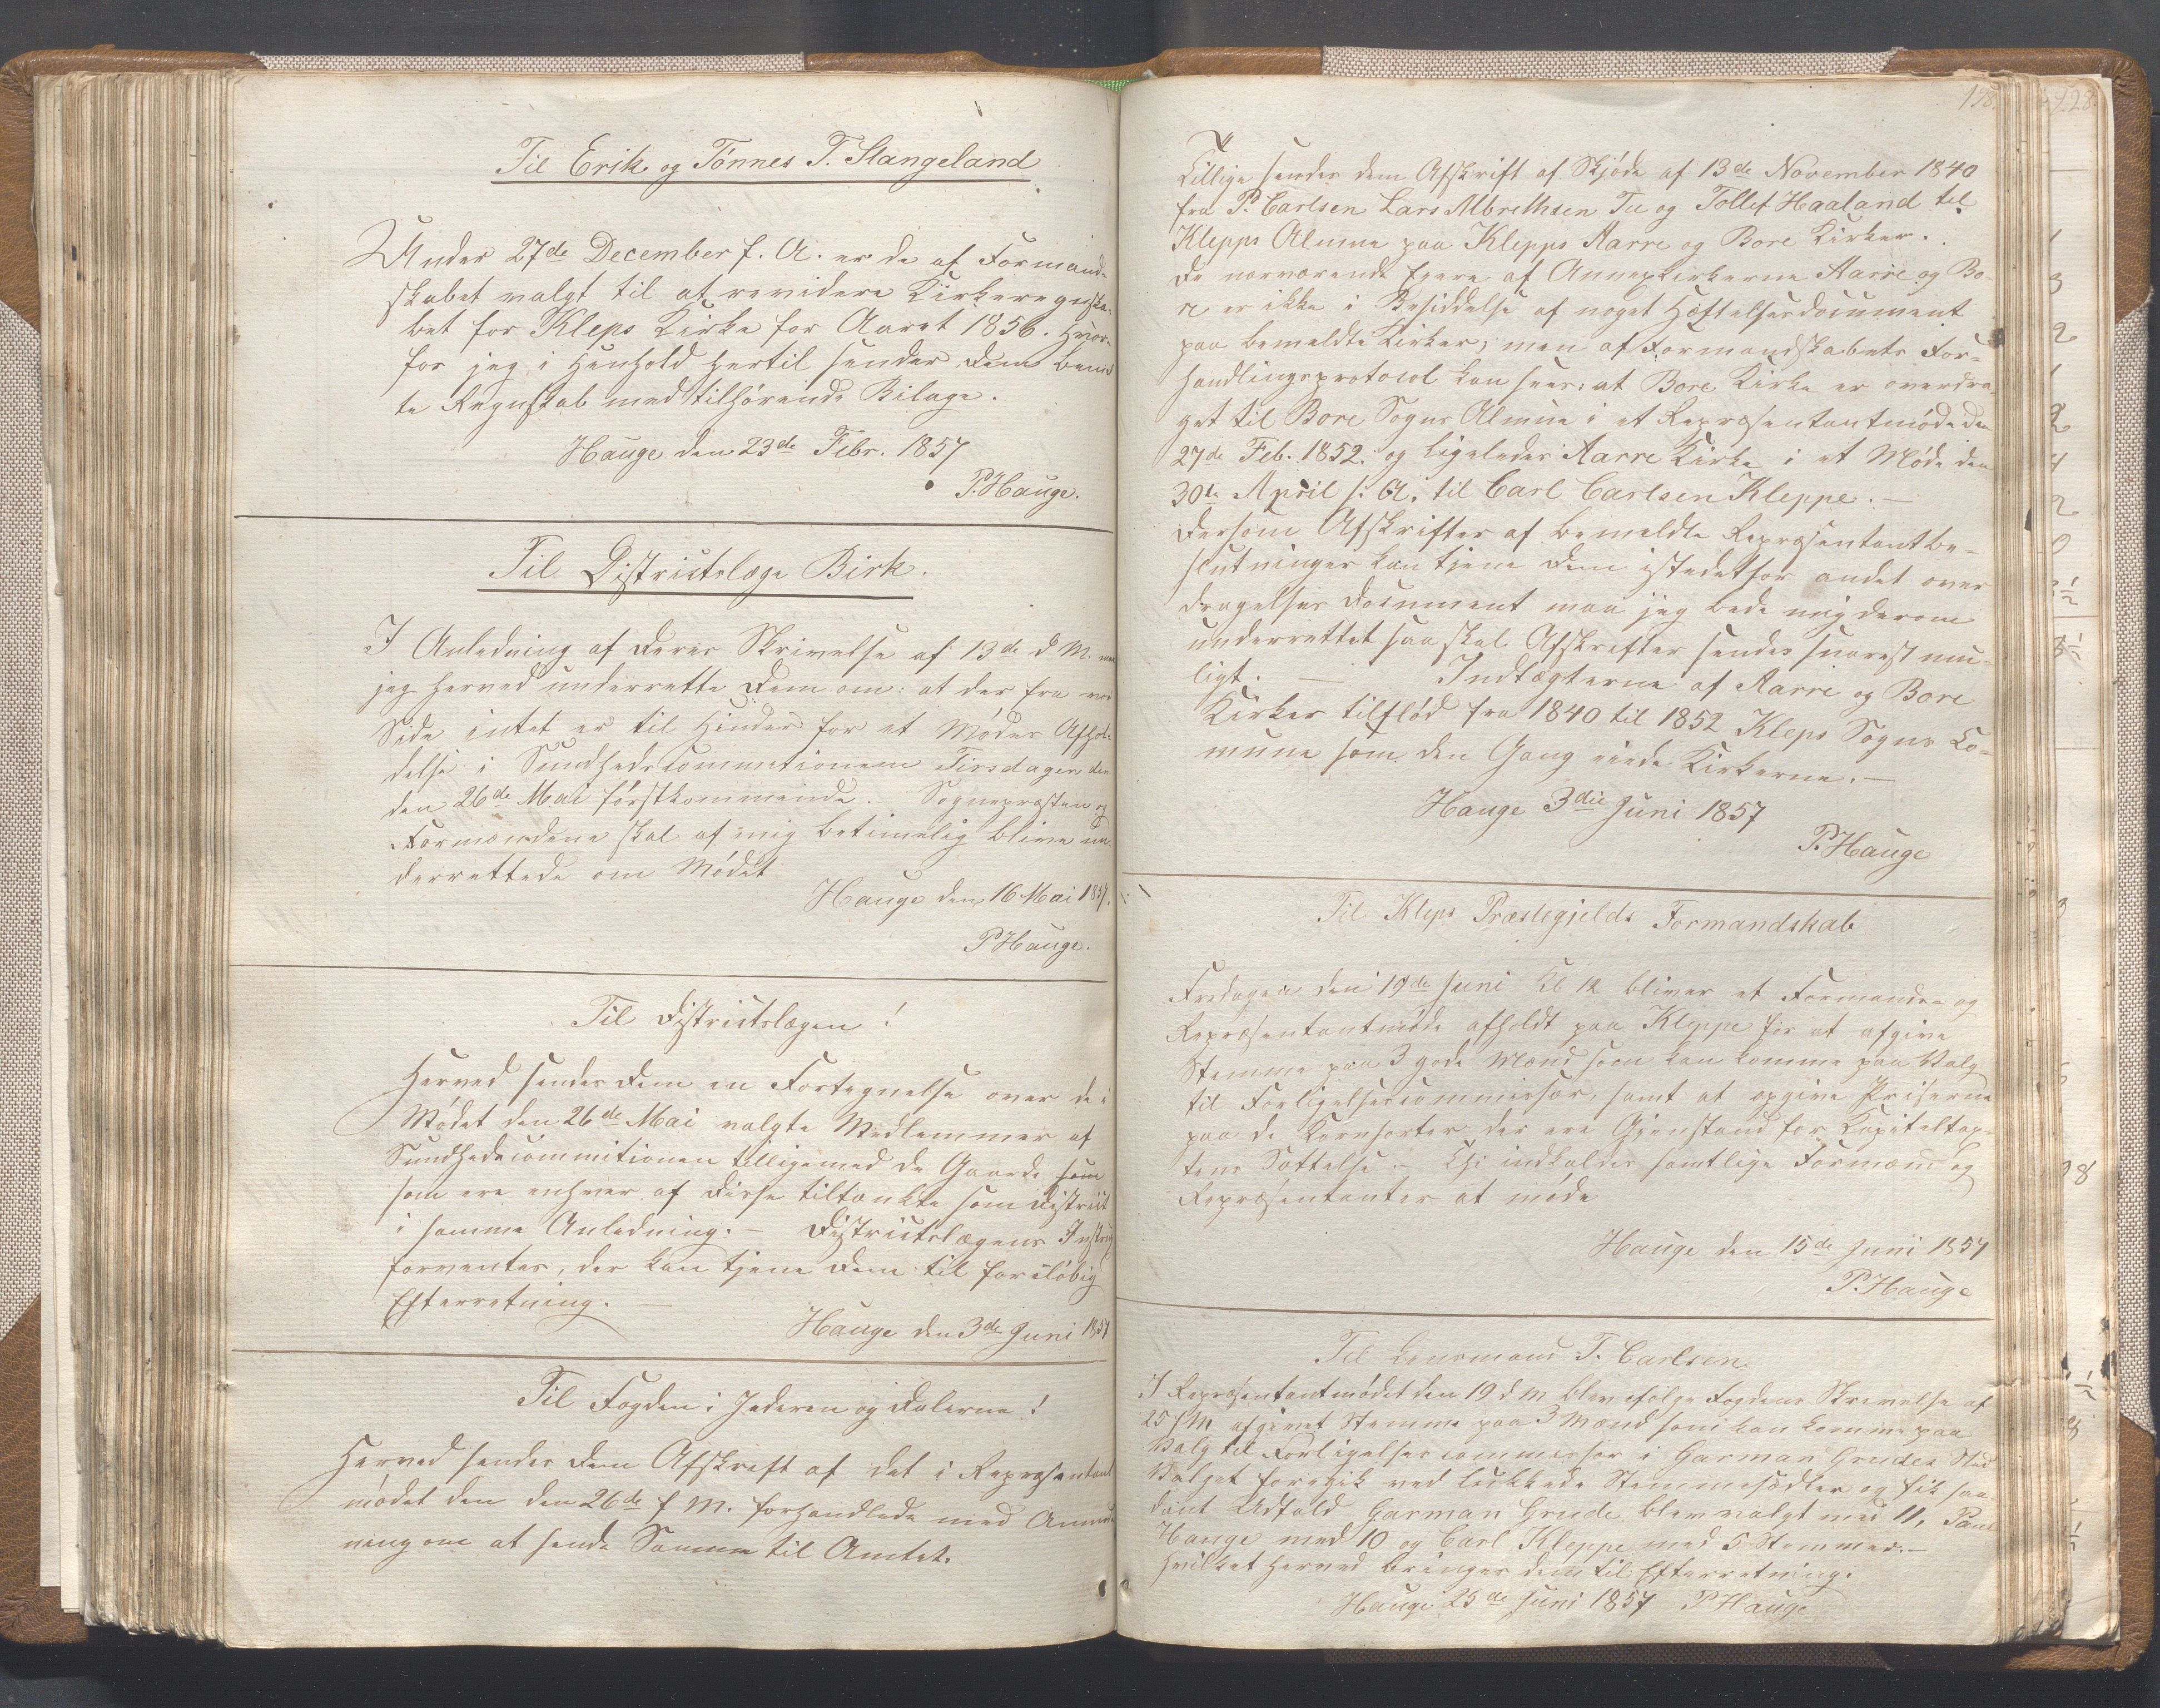 Til Erik og Tönnes T. Stangeland
Under 27de December f. A. er de af Formand-
skabet valgt til at revidere Kirkeregnska-
bet for Kleps Kirke for Aaret 1856. Hvor-
for jeg i Henhold hertil sender Dem bem
te Regnskab med tilhörende Bilage.
Hauge den 23de Febr. 1857
P. Hauge.
Til Districtslæge Birk.
I Anledning af Deres Skrivelse af 13de d M. maa
jeg herved underrette Dem om: at der fra vor
Side intet er til Hinder for et Mödes Afhol-
delse i Sundhedscommitionen Tirsdagen den
den 26de Mai förstkommende. Sognepræsten og
Formændene skal af mig betimelig blive un-
derrettede om Mödet
Hauge den 16 Mai 1857.
P Hauge.
Til Districtslægen!
Herved sendes Dem en Fortegnelse over de i
Mödet den 26de Mai valgte Medlemmer af
Sundhedscommitionen tilligemed de Gaarde som
som ere enhver af disse tiltænkte som District
i samme Anledning. — Districtslægens Instrux
forventes, der kan tjene Dem til forelöbig
Efterretning.
Hauge den 3de Juni 1857
Til Fogden i Jederen og Dalerne!
Herved sendes Dem Afskrift af det i Repræsentant
mödet den den 26de f M. forhandlede med Anmod
ning om at sende Samme til Amtet.
118
128
Tillige sendes dem Afskrift af Skjöde af 13de November 1840
fra P. Carlsen Lars Albrethsen Tu og Tollef Haaland til
Klepps Almue paa Klepps Aarre og Bore Kirker.
De nærværende Eyere af Annexkirkerne Aarre og Bo-
re er ikke i Besiddelse af noget Hæftelsesdocument
paa bemeldte Kirker; men af Formandskabets For-
handlingsprotocol kan sees, at Bore Kirke er overdra-
get til Bore Sogns Almue i et Repræsentantmöde den
27de Feb. 1852. og ligeledes Aarre Kirke i et Möde den
30te April s. A. til Carl Carlsen Kleppe. —
Dersom Afskrifter af bemeldte Repræsentantbe-
slutninger kan tjene Dem istedetfor andet over
dragelses Document maa jeg bede mig derom
underrettet saa skal Afskrifter sendes snarest mu-
ligt. — Indtægterne af Aarre og Bore
Kirker tilflöd fra 1840 til 1852 Kleps Sogns Co-
mune som den Gang eiede Kirkerne. —
Hauge 3die Juni 1857
P. Hauge
Til Kleps Præstegjelds Formandskab
Fredagen den 19de Juni Kl 12 bliver et Formænds og
Repræsentantmöde afholdt paa Kleppe for at afgive
Stemme paa 3 gode Mænd som kan komme paa Valg
til Forligelsescommissær, samt at opgive Priserne
paa de Kornsorter der ere Gjenstand for Kapiteltax-
tens Sættelse. — Thi indkaldes samtlige Formænd og
Repræsentanter at möde
Hauge den 15de Juni 1857
P. Hauge
Til Lensmand T. Carlsen
I Repræsentantmödet den 19 d M blev ifölge Fogdens Skrivelse af
25 f M. afgivet Stemme paa 3 Mænd som kan komme paa
Valg til Forligelsescommissær i Garman Grudes Sted
Valget foregik ved lukkede Stemmesedler og fik saa-
dant Udfald Garman Grude blev valgt med 11, Paul
Hauge med 10 og Carl Kleppe med 5 Stemmer. —
Hvilket herved bringes dem til Efterretning.
Hauge 25de Juni 1857 P Hauge